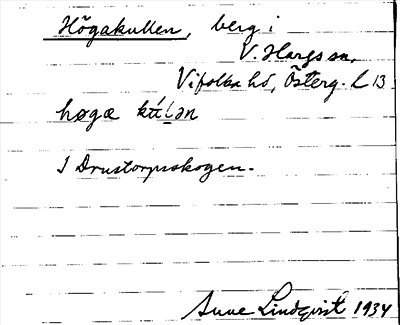 Högakullen, berg i
V. Hargs sn,
Vifolka hd, Österg. L 13
høgæ kúḷən
I Drustorpsskogen.
Sune Lindqvist 1934